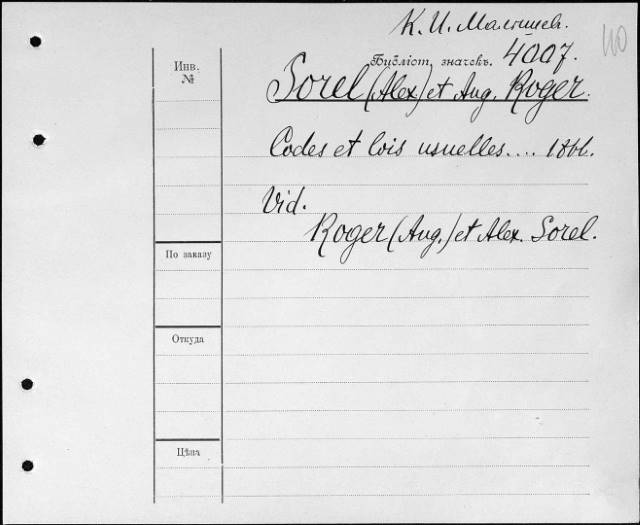 К. И. Малышев.
Библіот. значекъ. 4007.
Инв.
№
Sorel (Alex) et Aug. Roger.
Codes et lois usuelles.... 1866.
Vid.
Roger (Aug.) et Alex. Sorel.
По заказу
Откуда
Цѣна